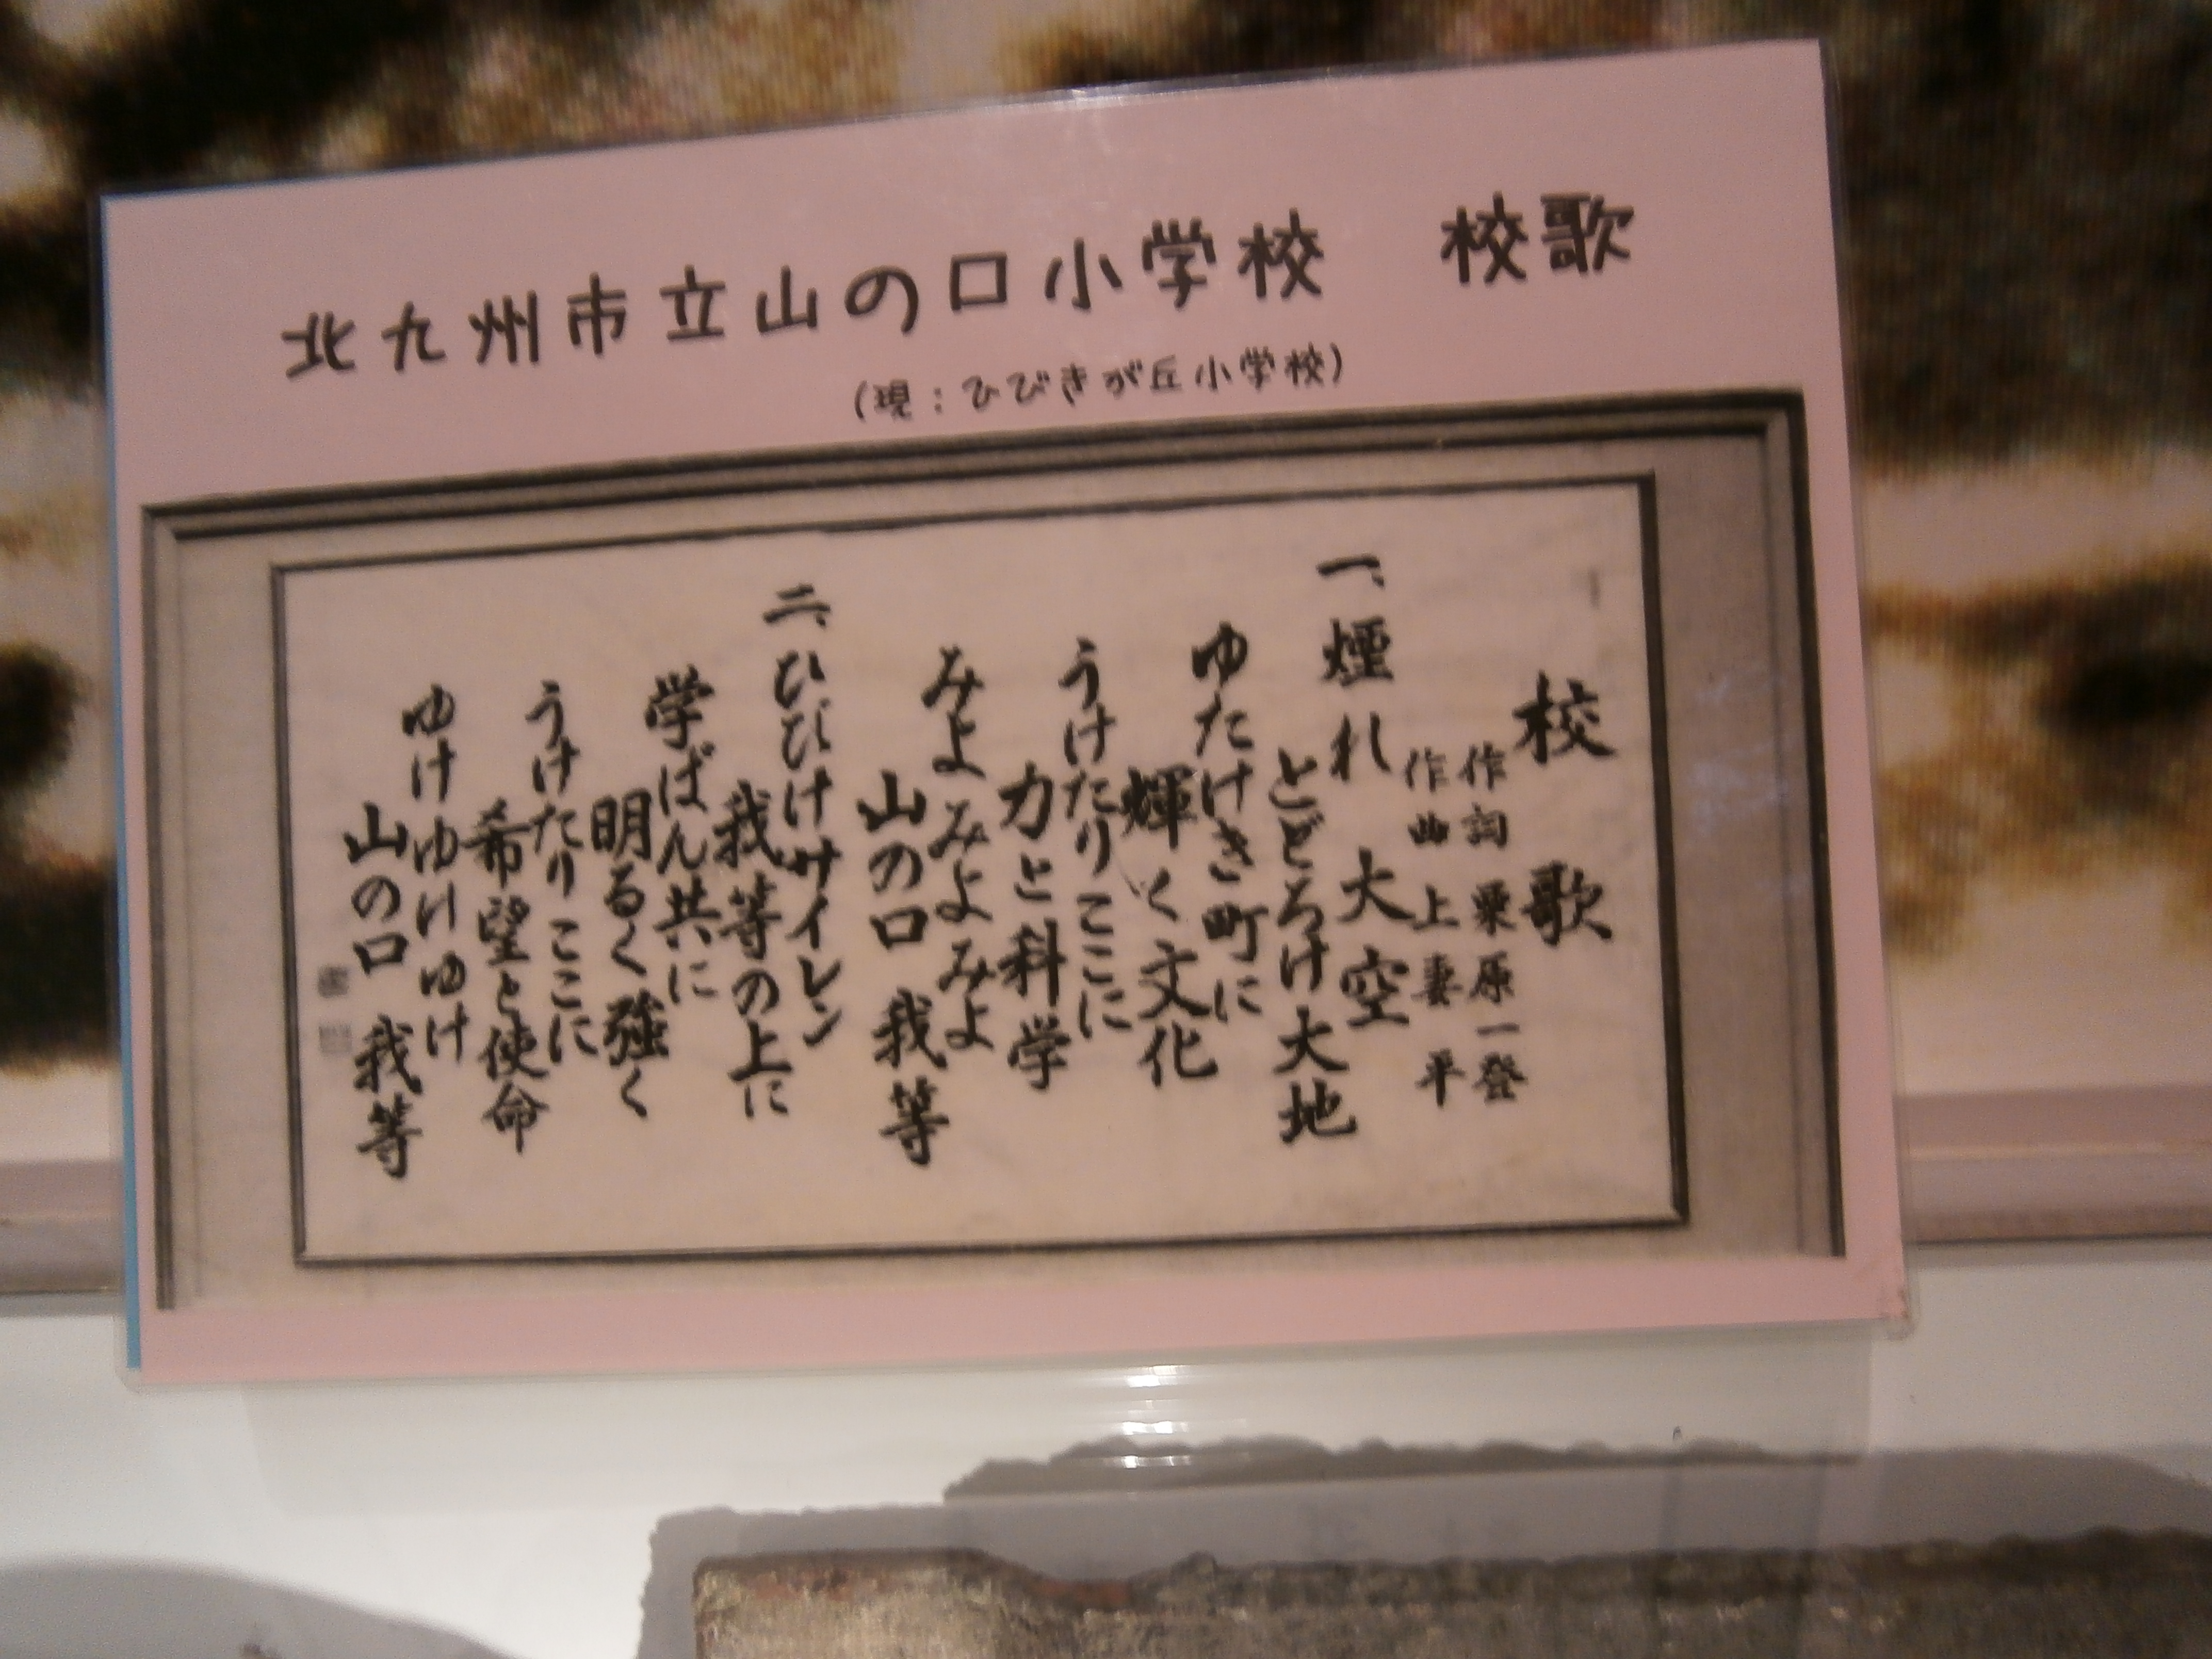 北九州市立山の口小学校　校歌
(現：ひびきが丘小学校)
校歌
作詞 粟原一登
作曲 上妻 平
一、煙れ 大空
とどろけ大地
ゆたけき町に
輝く文化
うけたりここに
力と科学
みよみよみよ
山の口 我等
二、ひびけサイレン
我等の上に
学ばん共に
明るく強く
うけたりここに
希望と使命
ゆけゆけゆけ
山の口 我等